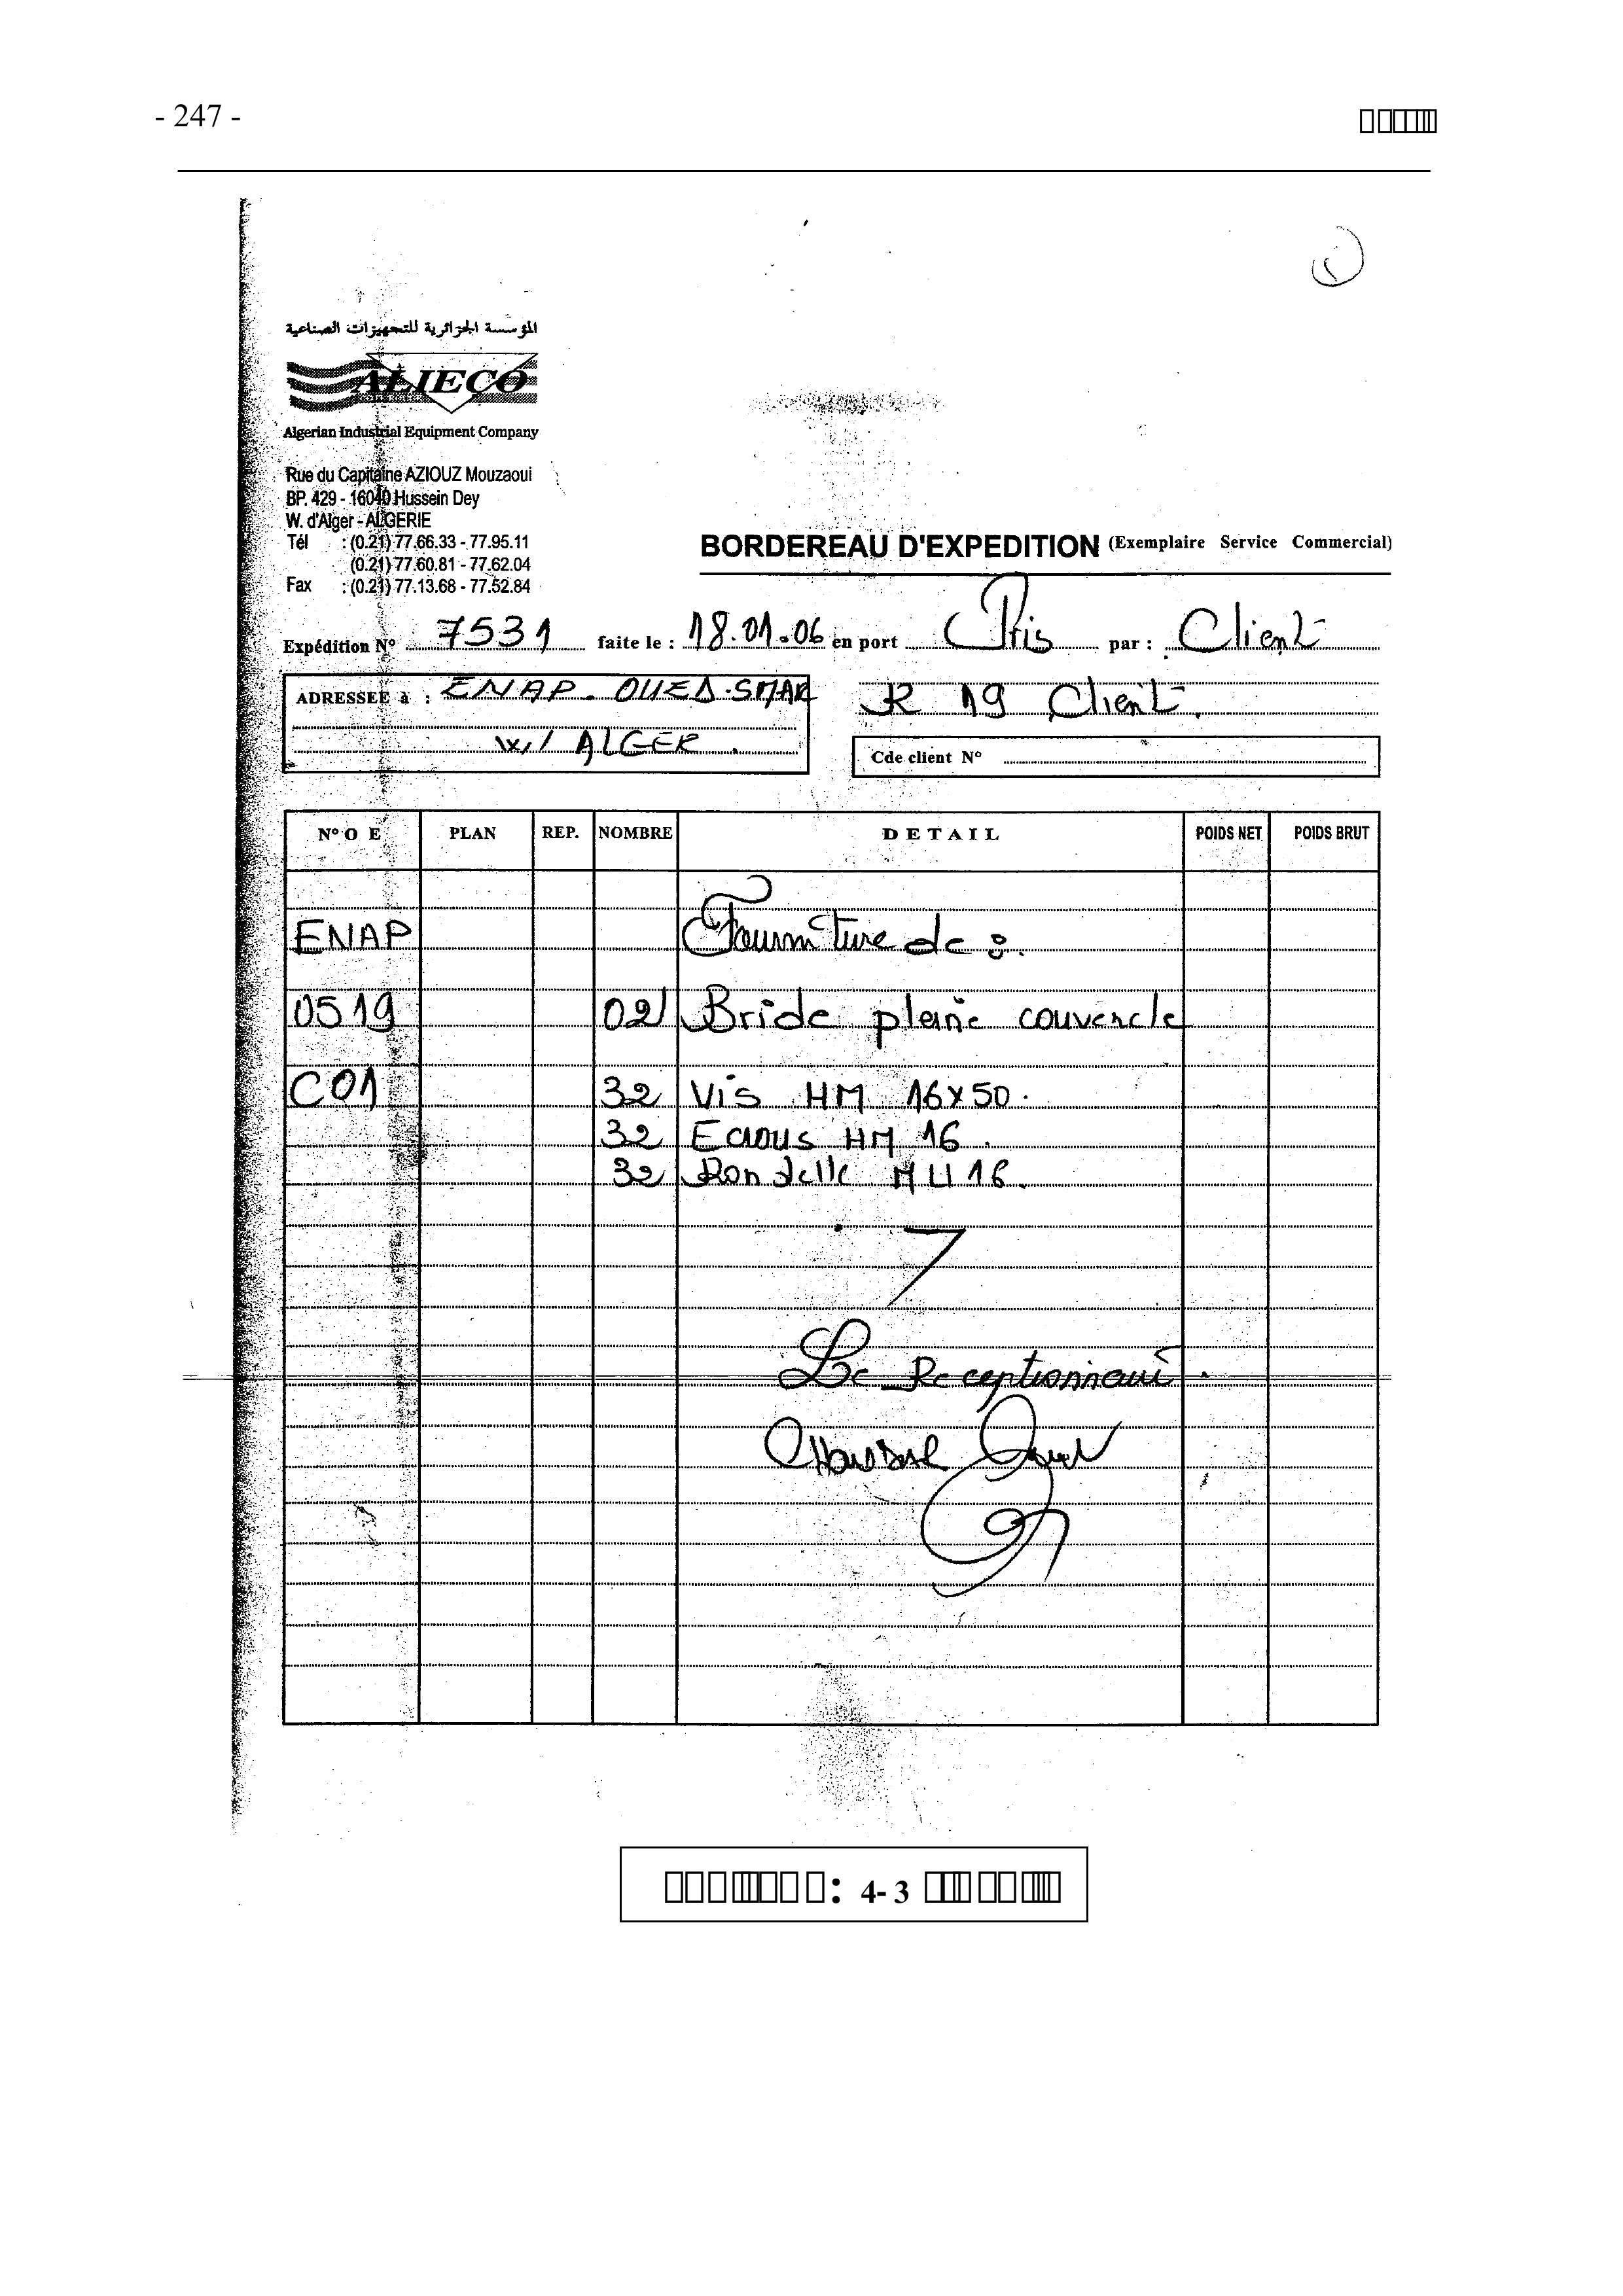 - 247 -
المؤسسة الجزائرية للتجهيزات الصناعية
ALIECO
Algerian Industrial Equipment Company
Rue du Capitaine AZIOUZ Mouzaoui
BP. 429 - 16040 Hussein Dey
W. d'Alger - ALGERIE
Tél : (0.21) 77.66.33 - 77.95.11
(0.21) 77.60.81 - 77.62.04
Fax : (0.21) 77.13.68 - 77.52.84
BORDEREAU D'EXPEDITION (Exemplaire Service Commercial)
Expédition N° 7531 faite le : 18.01.06 en port Pris par : Client
ADRESSEE à : ENAP - OUED-SMAR
W/ ALGER.
R 19 Client.
Cde client N°
N° O E PLAN REP. NOMBRE DETAIL POIDS NET POIDS BRUT
ENAP Fourniture de :
0519 02 Bride pleine couvercle
C01 32 Vis HM 16x50.
32 Ecrous HM 16.
32 Rondelle MU 16.
Le Receptionnaire
: 4-3